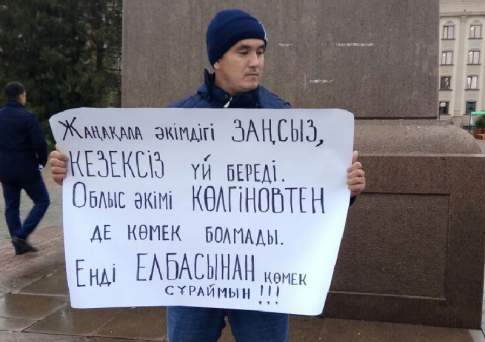 Жаңақала әкімдігі ЗАҢСЫЗ,
КЕЗЕКСІЗ ҮЙ БЕРЕДІ.
Облыс әкімі КӨЛГІНОВТЕН
ДЕ КӨМЕК БОЛМАДЫ.
Енді ЕЛБАСЫНАН КӨМЕК
СҰРАЙМЫН!!!